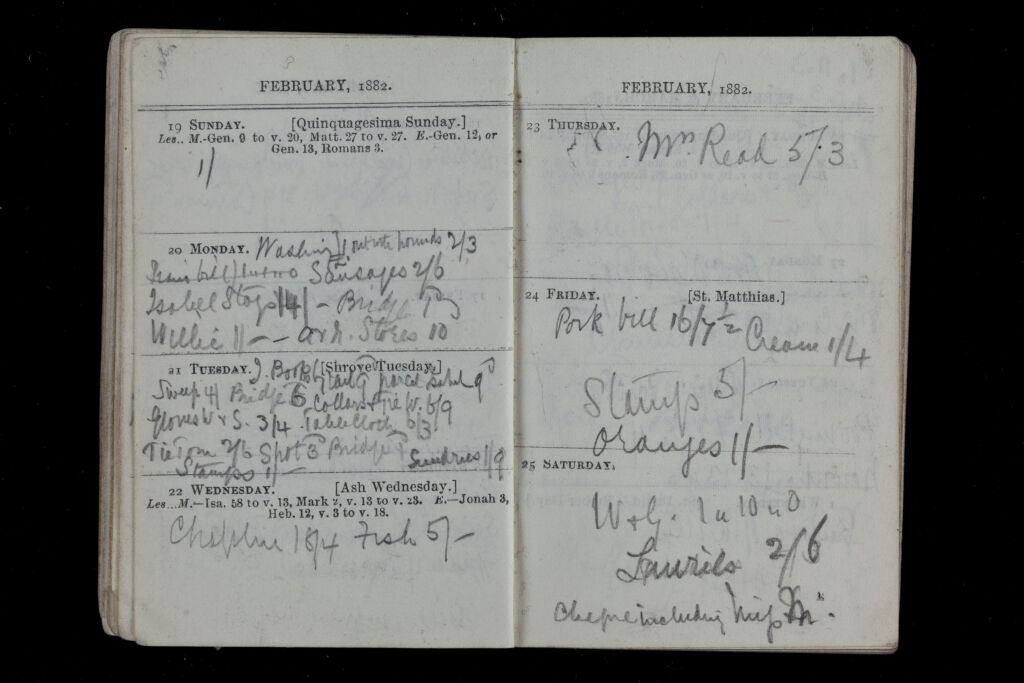 FEBRUARY, 1882.
19 SUNDAY. [Quinquagesima Sunday.]
Les.. M.-Gen. 9 to v. 20, Matt. 27 to v. 27. E.-Gen. 12, or
Gen. 13, Romans 3.
1/
20 MONDAY. Washing 2/3
Sausages 2/6
Isabel Stays 4/- Bridge
Willie 1/- Stores 10
21 TUESDAY. [Shrove Tuesday.] parcel 9d
Sweep 4/ Bridge 6 Collars & Tie W. 6/9
Gloves W & S. 3/4 Table Cloth 6/3
Tie Tom 2/6 Spot Bridge Sundries 1/9
Stamps 1/-
22 WEDNESDAY. [Ash Wednesday.]
Les...M.—Isa. 58 to v. 13, Mark 2, v. 13 to v. 23. E.—Jonah 3,
Heb. 12, v. 3 to v. 18.
18/4 Fish 5/-
FEBRUARY, 1882.
23 THURSDAY.
Mrs Read 5/.3
24 FRIDAY. [St. Matthias.]
Pork bill 16/7½ Cream 1/4
Stamps 5/-
Oranges 1/-
25 SATURDAY.
W & G. 1 " 10 " 0
Laurels 2/6
including Miss